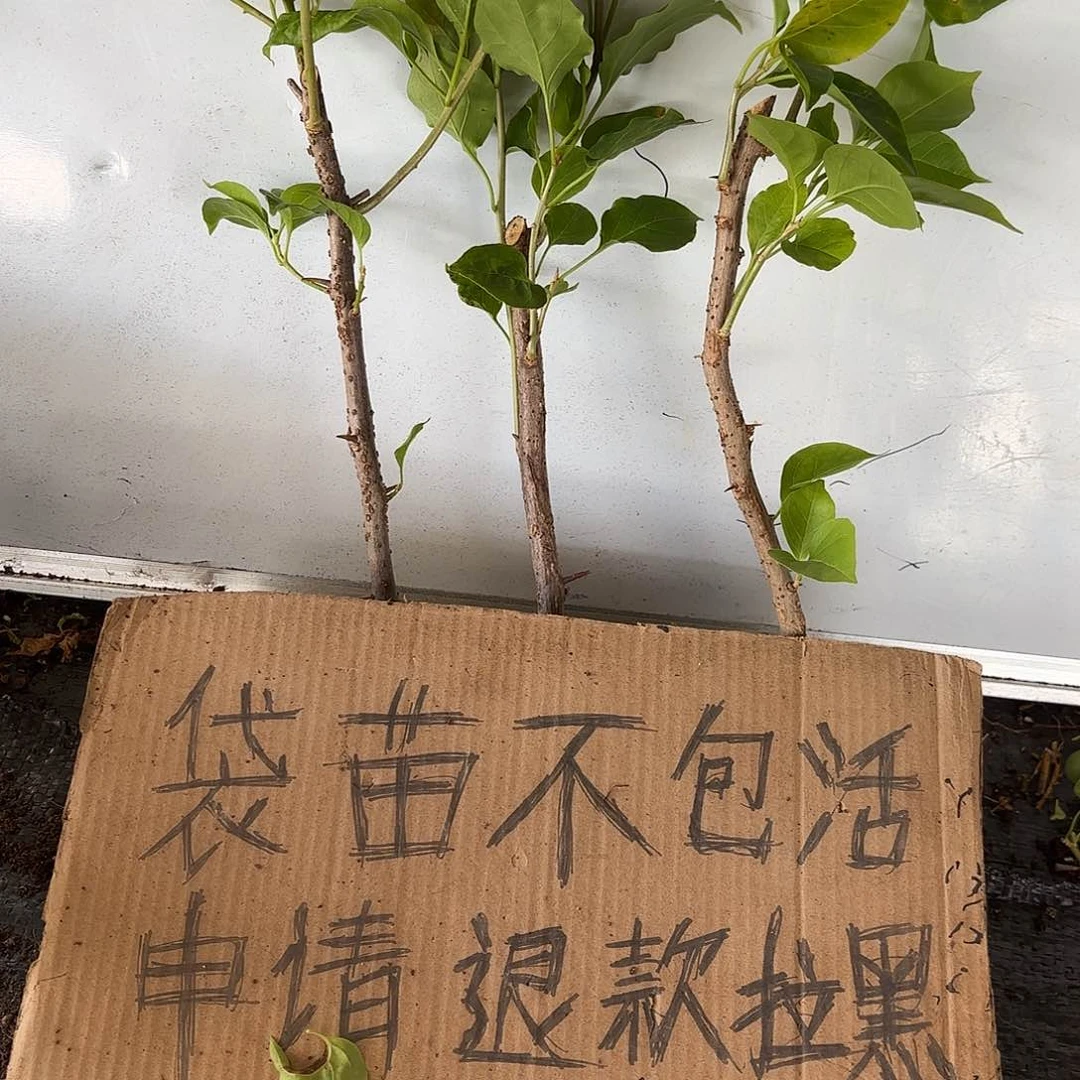 袋苗不包活
申请退款拉黑